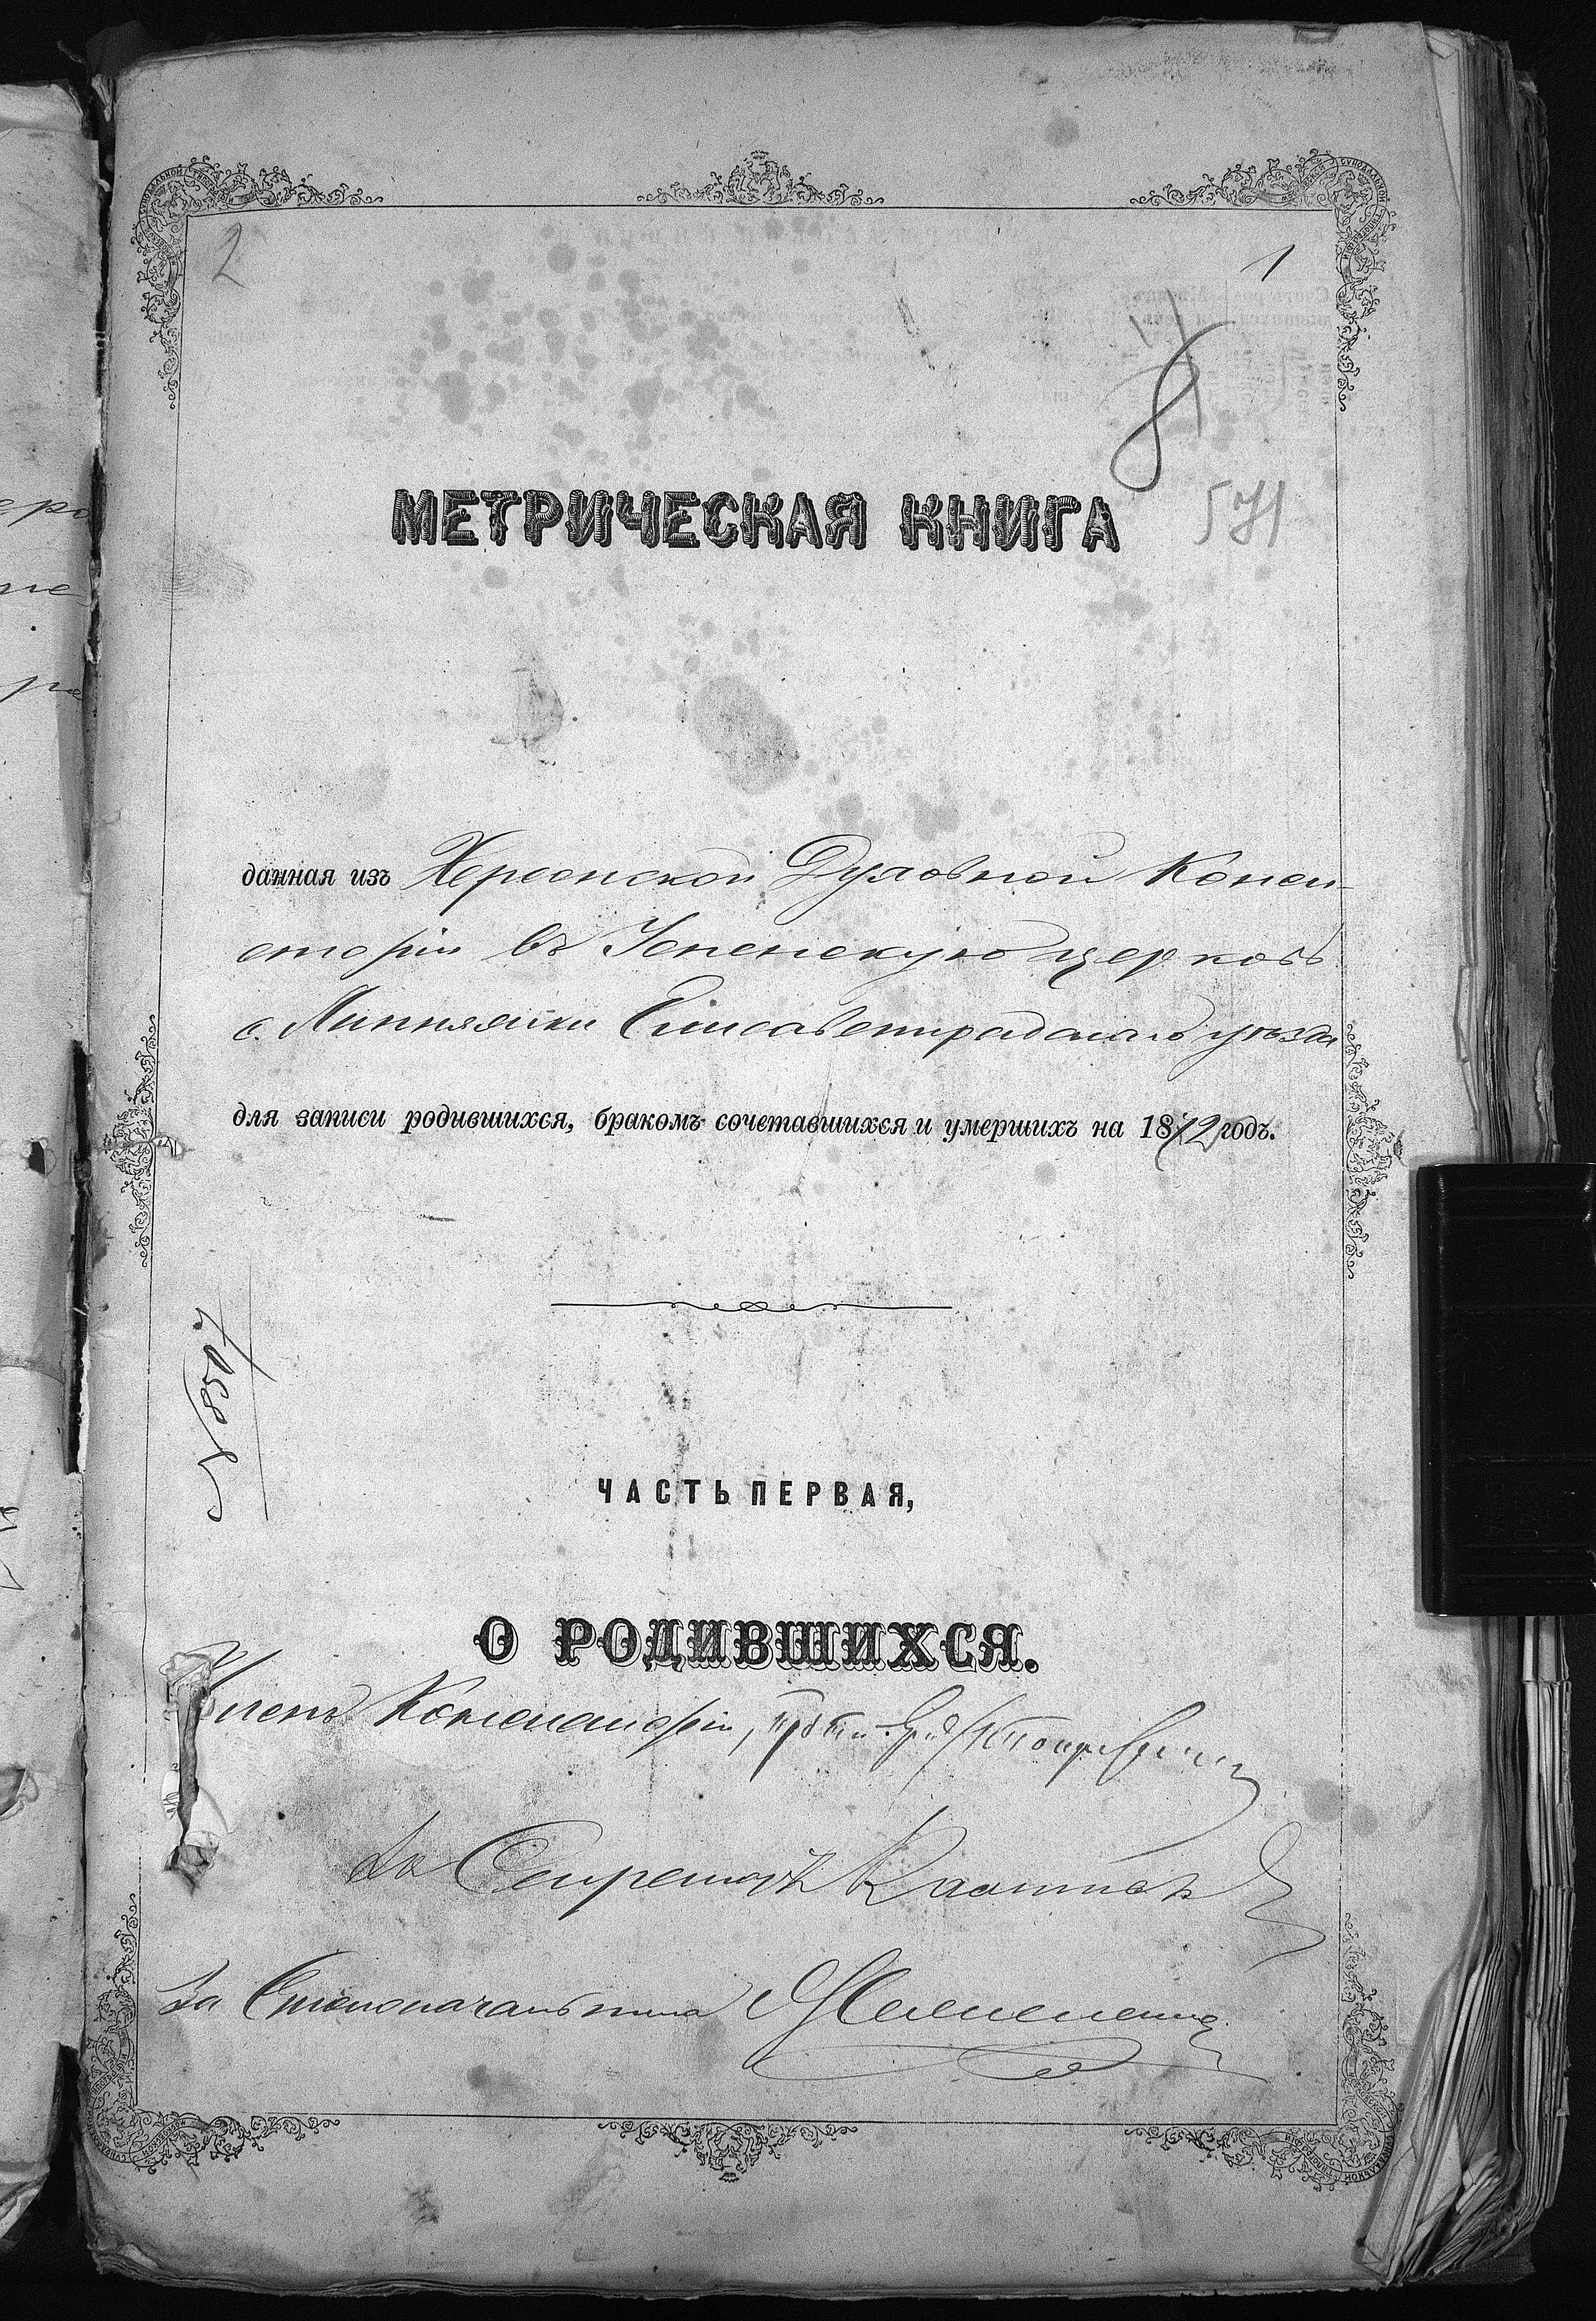 2
1
8
571
МЕТРИЧЕСКАЯ КНИГА
данная изъ Херсонской Духовной Конси-
сторіи въ Успенскую церковь
с. Липняжки Елисаветградскаго уѣзда
для записи родившихся, бракомъ сочетавшихся и умершихъ на 1872 годъ.
№ 8507
ЧАСТЬ ПЕРВАЯ,
О РОДИВШИХСЯ.
Членъ Консисторіи,
За Секретаря
За Столоначальника